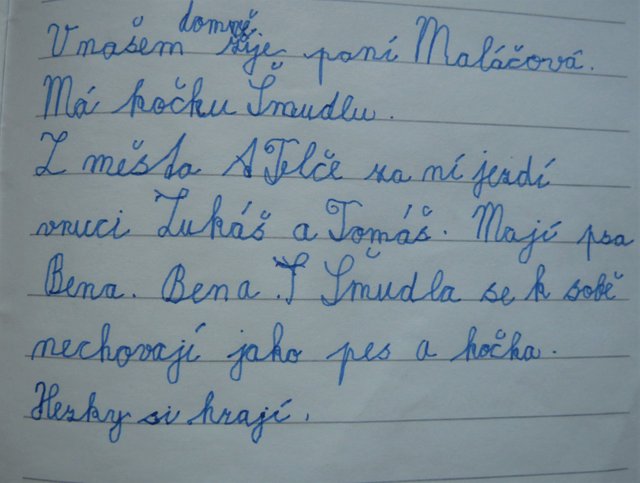 V našem domně žije paní Maláčová.
Má kočku Šmudlu.
Z města Telče za ní jezdí
vnuci Lukáš a Tomáš. Mají psa
Bena. Bena Šmudla se k sobě
nechovají jako pes a kočka.
Hezky si hrají.